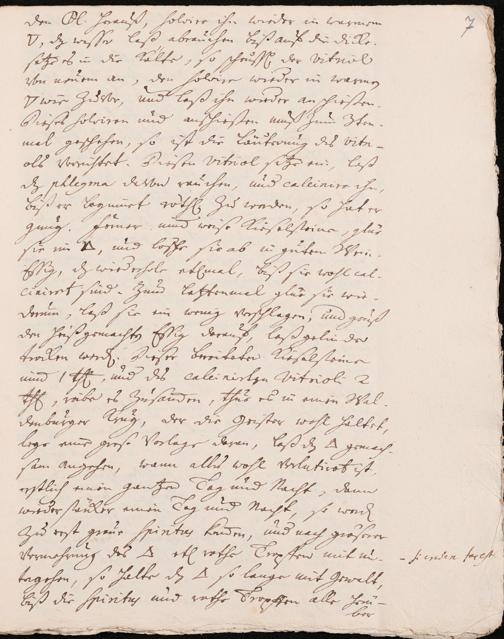 7
den Ol. herauß, solvire ihn wieder in warmem
▽, dz wasser laß abrauchen biß auf die dicke,
setz es in die Kälte, so schießt der vitriol
von neuem an, den solvire wieder in warm
▽ wie Zuvor, und laß ihn wieder anschießen.
Dieses solviren und anschießen muß zum 3ten
mal geschehen, so ist die läuterung des vitri-
ols verrichtet. Diesen vitriol setze ein, laß
dz phlegma davon rauchen, und calcinire ihn,
biß er beginnet röthl. zu werden, so hat er
gnug. Ferner nim weiße Kieselsteine, glüe
sie im △, und lösche sie ab in guten Wein-
Eßig, dz wiederhole etlmal, biß sie wohl cal-
cinirt sind. Zum letztenmal glüe sie wie-
derum, laß sie ein wenig verschlagen, und gieß
den heißgemachten Eßig darauf, laß gelinde
trocken werd. Dieser bereiteten Kieselsteine
nim 1 ℔, und des calcinirten Vitrioli 2
℔, reibe es zusammen, thue es in einen Wal-
denburger Krug, der die Geister wohl haltet,
lege eine große Vorlage daran, laß dz △ gemach-
sam angehen, wann alles wohl verlutirt ist,
erstlich einen gantzen Tag und Nacht, dann
wieder stärker einen Tag und Nacht, so werd
zu erst graue spiritus kommen, und nach größerer
Vermehrung des △ etl. rothe Tropffen mit un-
tergehen, so halte dz △ so lange mit Gewalt,
biß die spiritus und rothe Tropffen alle herü-
ber